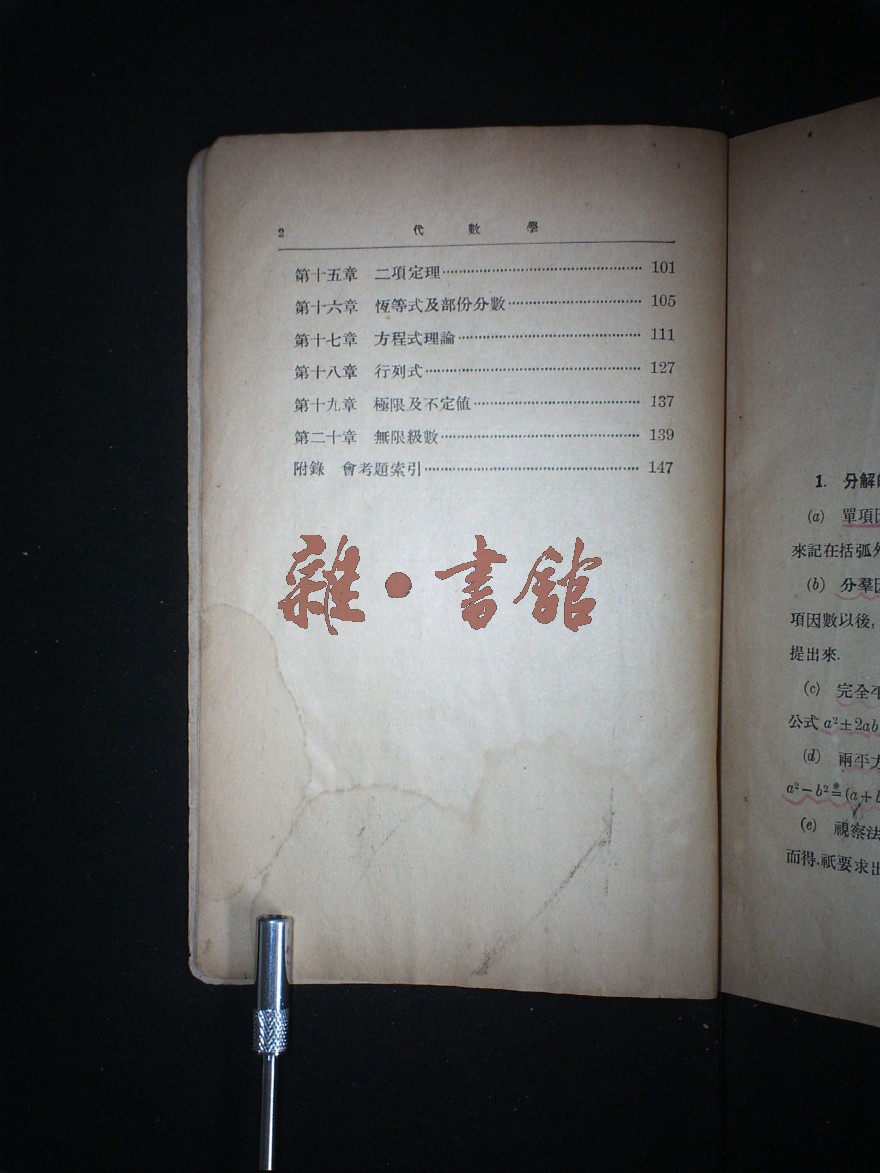 2 代數學
第十五章 二項定理 101
第十六章 恆等式及部份分數 105
第十七章 方程式理論 111
第十八章 行列式 127
第十九章 極限及不定值 137
第二十章 無限級數 139
附錄 會考題索引 147
雜·書館
1. 分解
(a) 單項因
來記在括弧
(b) 分羣因
項因數以後,
提出來.
(c) 完全平
公式 a²±2ab
(d) 兩平方
a²−b²=(a+b
(e) 視察法
而得.祇要求出